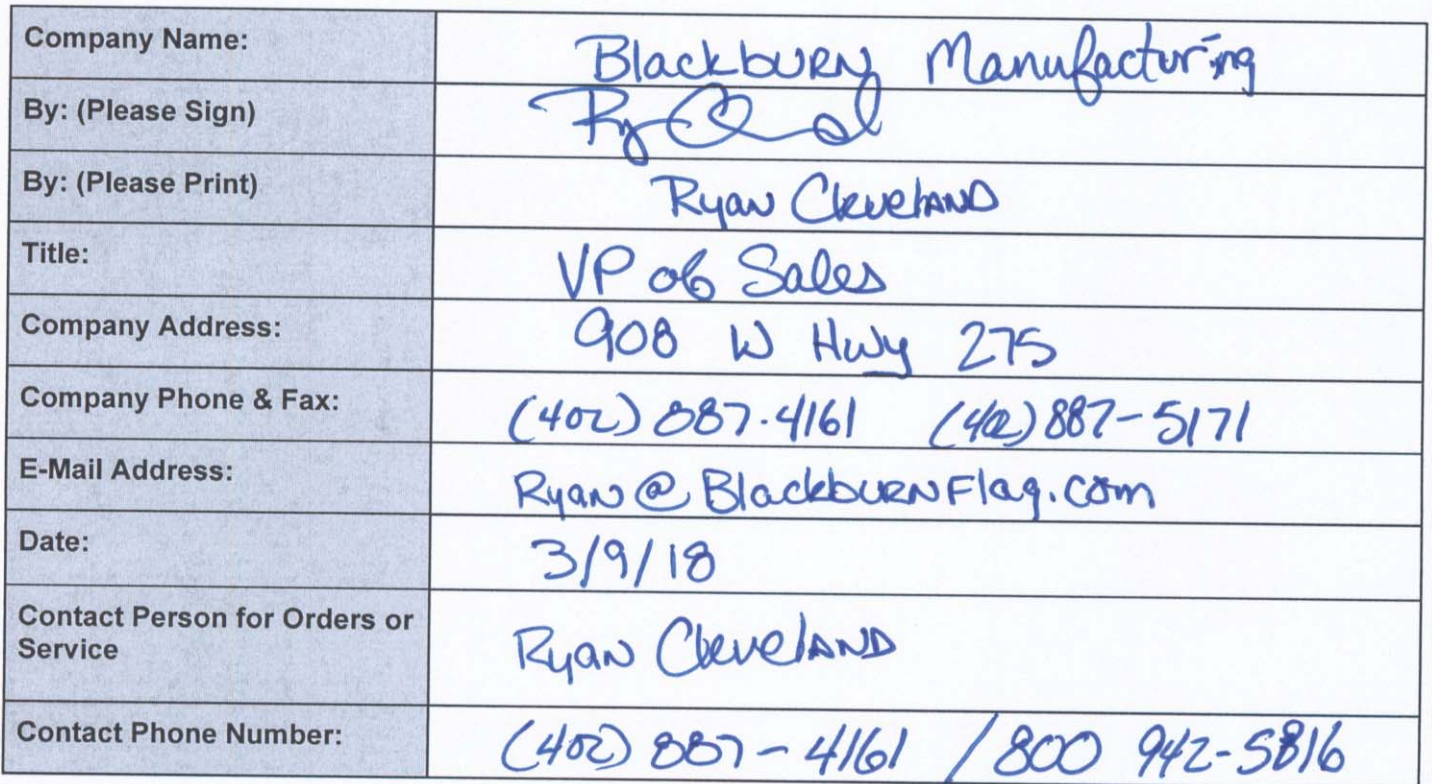 Company Name: Blackburn Manufacturing
By: (Please Sign)
By: (Please Print) Ryan Cleveland
Title: VP of Sales
Company Address: 908 W Hwy 275
Company Phone & Fax: (402) 887-4161 (402) 887-5171
E-Mail Address: Ryan@BlackburnFlag.com
Date: 3/9/18
Contact Person for Orders or
Service Ryan Cleveland
Contact Phone Number: (402) 887-4161 / 800 942-5816